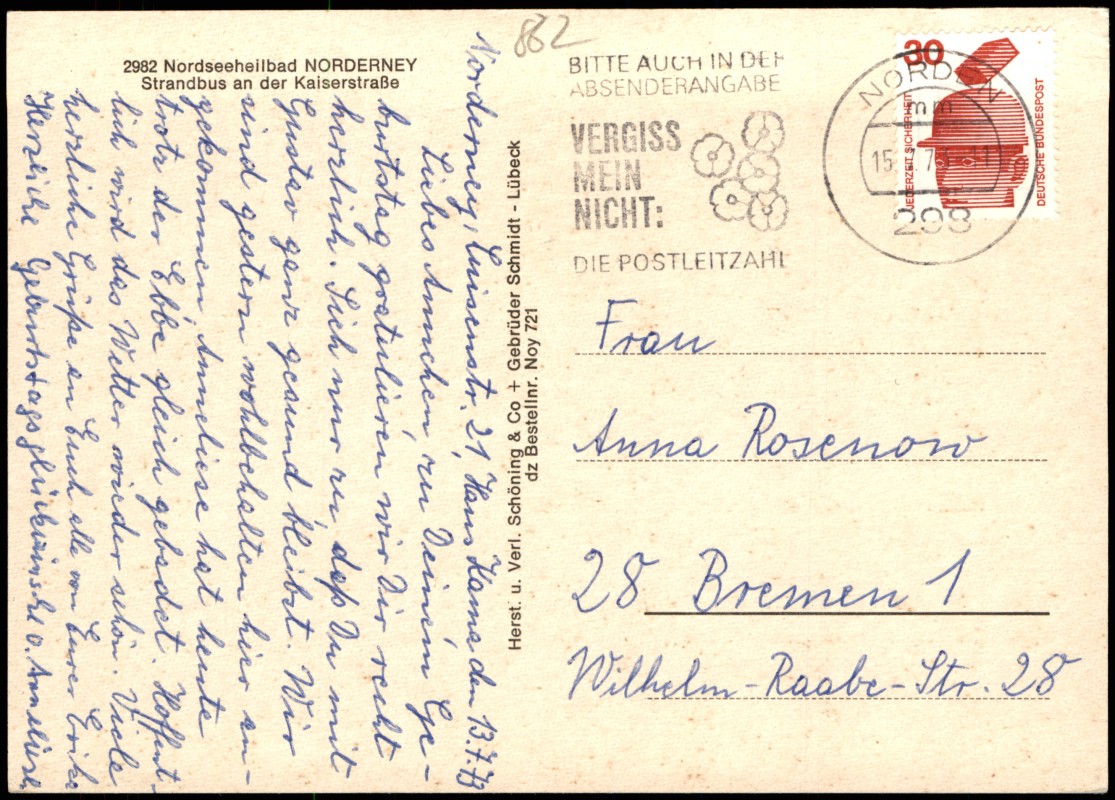 2982 Nordseeheilbad NORDERNEY
Strandbus an der Kaiserstraße
862
Norderney, Luisenstr. 21, Haus Hanna den 13.7.73
Liebes Annchen, zu Deinem Ge-
burtstag gratulieren wir Dir recht
herzlich. Sieh nur zu, daß Du mit
Gustav ganz gesund bleibst. Wir
sind gestern wohlbehalten hier an-
gekommen. Anneliese hat heute
trotz der Ebbe gleich gebadet. Hoffent-
lich wird das Wetter wieder schön. Viele
herzliche Grüße an Euch alle von Eurer Erika
Herzliche Geburtstagsglückwünsche v. Anneliese
Herst. u. Verl. Schöning & Co + Gebrüder Schmidt - Lübeck
dz Bestellnr. Noy 721
BITTE AUCH IN DER
ABSENDERANGABE
VERGISS
MEIN
NICHT:
DIE POSTLEITZAHL
NORDEN
mm
15. 7.7
11
298
30
JEDERZEIT SICHERHEIT
DEUTSCHE BUNDESPOST
Frau
Anna Rosenow
28 Bremen 1
Wilhelm-Raabe-Str. 28